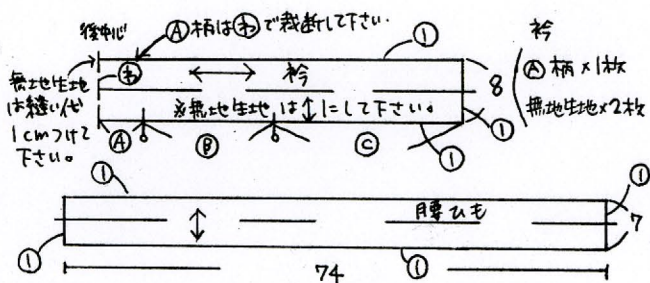 後中心
Ⓐ柄はわで裁断して下さい。
①
わ
衿
8
衿
Ⓐ柄×1枚
無地生地×2枚
無地生地
は縫い代
1cmつけて
下さい。
※無地生地は↕にして下さい。
①
Ⓐ
Ⓑ
Ⓒ
①
①
①
腰ひも
7
①
①
74